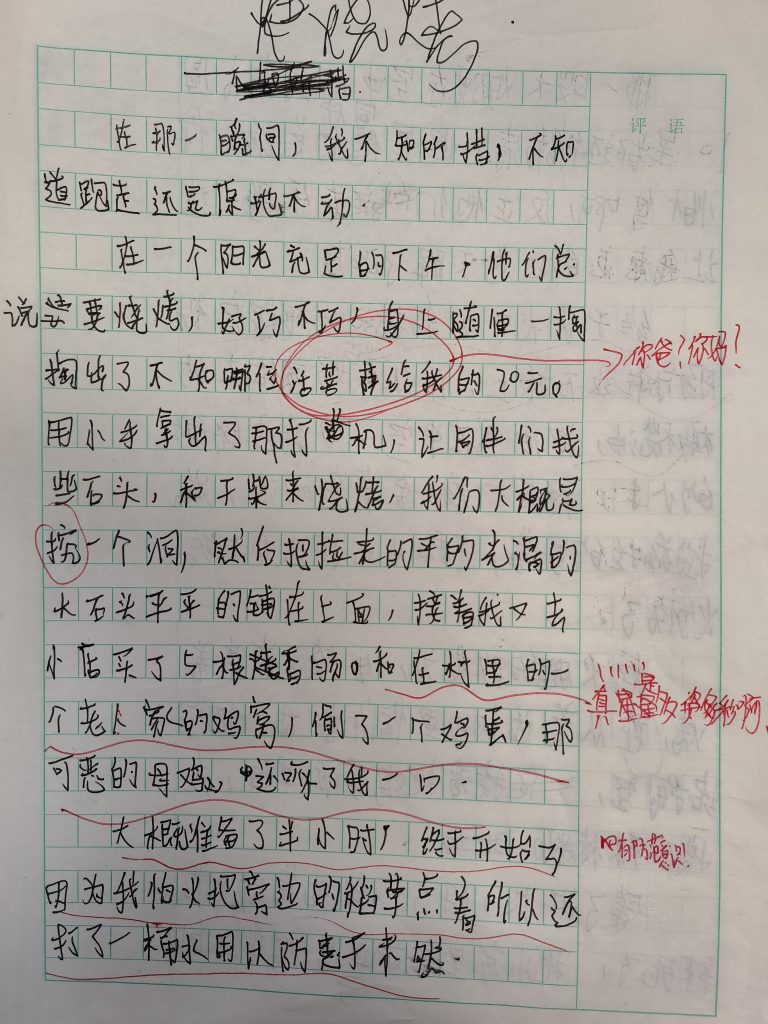 烧烤
措.
评 语
在那一瞬间，我不知所措，不知
道跑走还是原地不动.
在一个阳光充足的下午，他们总
说要烧烤，好巧不巧，身上随便一掏
掏出了不知哪位活菩萨给我的20元。
你爸？你妈？
用小手拿出了那打机，让同伴们找
些石头，和干柴来烧烤，我们大概是
挖一个洞，然后把捡来的平的光滑的
大石头平平的铺在上面，接着我又去
小店买了5根烤香肠。和在村里的一
真是
个老人家的鸡窝，偷了一个鸡蛋，那
可恶的母鸡，还啄了我一口.
大概准备了半小时，终于开始了，
有防范意识！
因为我怕火把旁边的稻草点着所以还
打了一桶水用以防患于未然.